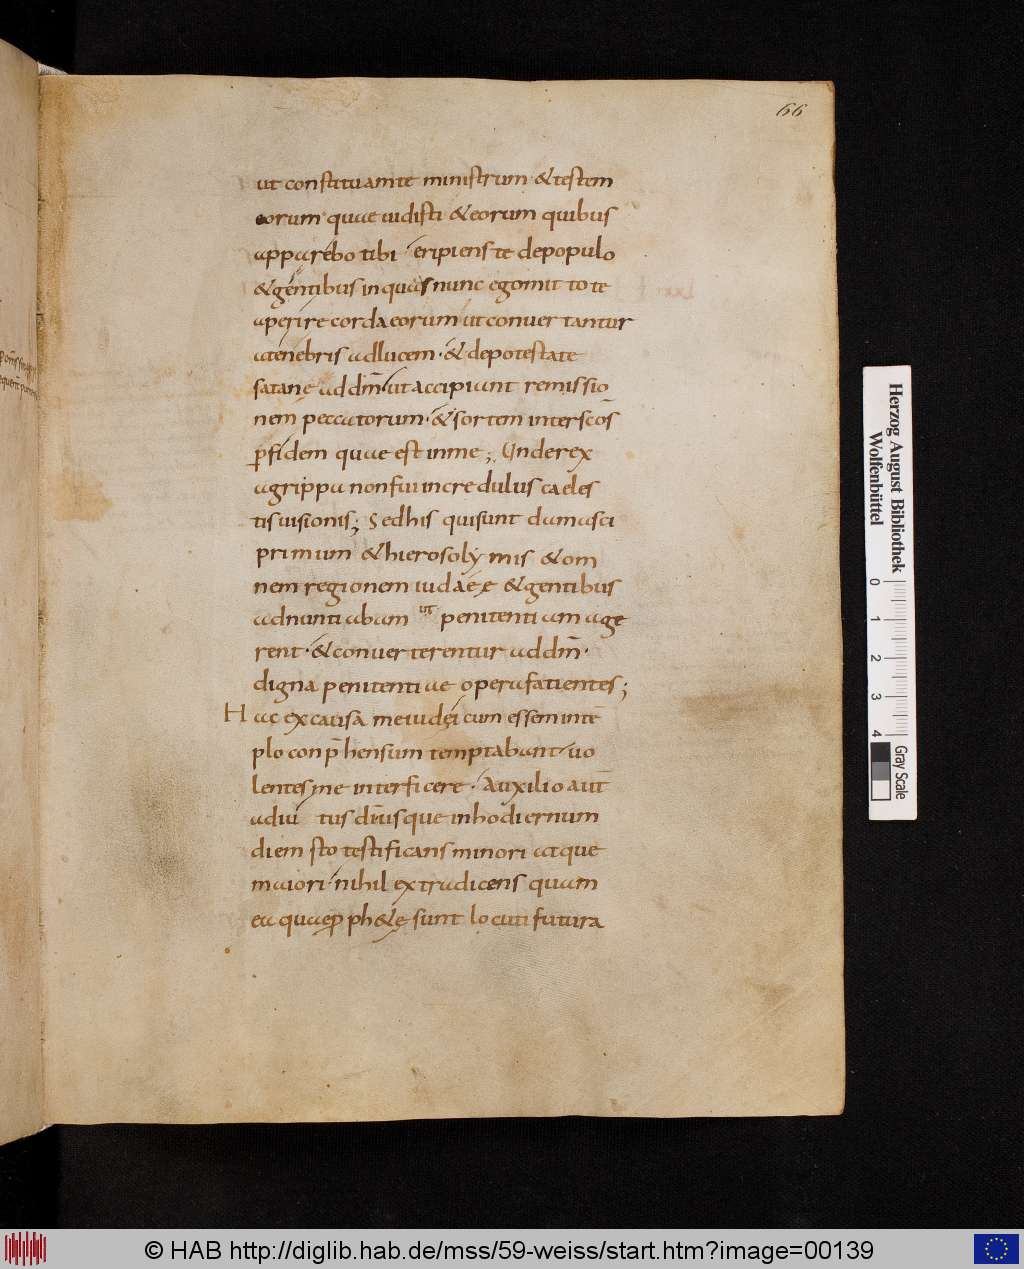 66
ut constituamte ministrum &testem
eorum quae uidisti &eorum quibus
apparebo tibi eripienste depopulo
&gentibus inquas nunc egomit to te
aperire cordaeorum ut conuer tantur
atenebris adlucem· & depotestate
satane addm̄ ut accipiunt remissio
nem peccatorum· & sortem interscōs
p̄fidem quae est inme; Underex
agrippa nonfui incredulus caeles
tisuisionis; Sedhis quisunt damasci
primum &hierosolymis &om
nem regionem iudaeę &gentibus
adnuntiabam ut penitentiam age
rent· &conuerterentur addm̄·
digna penitentiae operafatientes;
Hac excausa meiudei cum essem intē
plo conp̄hensum temptabant uo
lentes me interficere· Auxilio aut̄
adiu tus dīusque inhodiernum
diem sto testificans minori atque
maiori· nihil extradicens quam
ea quaep̱ ph&ę sunt locuti futura
Herzog August Bibliothek
Wolfenbüttel
0 1 2 3 4
Gray Scale
© HAB http://diglib.hab.de/mss/59-weiss/start.htm?image=00139